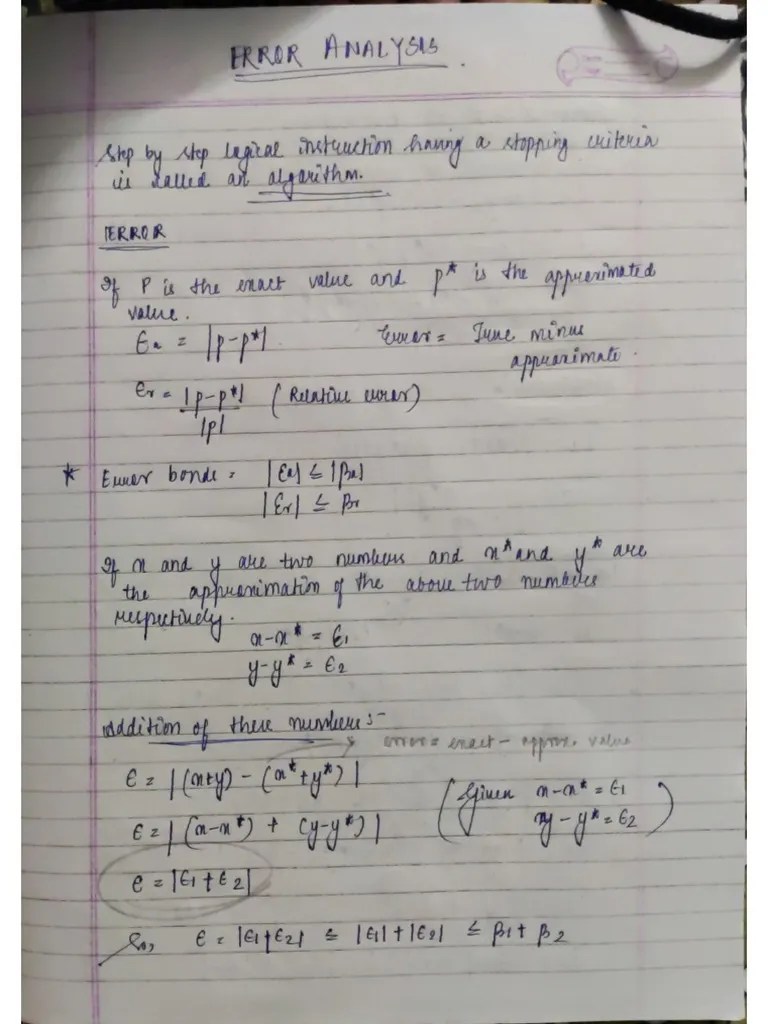 ERROR ANALYSIS
Step by step logical instruction having a stopping criteria
is called an algorithm.
ERROR
If P is the exact value and p* is the approximated
value.
Ea = |p-p*| Error = True minus
approximate.
Er = |p-p*| / |p| (Relative error)
* Error bonds = |Ea| ≤ |βa|
|Er| ≤ βr
If x and y are two numbers and x* and y* are
the approximation of the above two numbers
respectively.
x-x* = E1
y-y* = E2
Addition of these numbers:-
error = exact - approx. value
E = |(x+y) - (x*+y*)|
E = |(x-x*) + (y-y*)| (Given x-x* = E1
y-y* = E2)
e = |E1+E2|
So, E = |E1+E2| ≤ |E1|+|E2| ≤ β1+β2